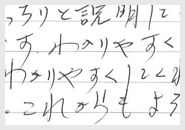 っちりと説明して
す。わかりやすく
わかりやすくしてくだ
。これからもよろ